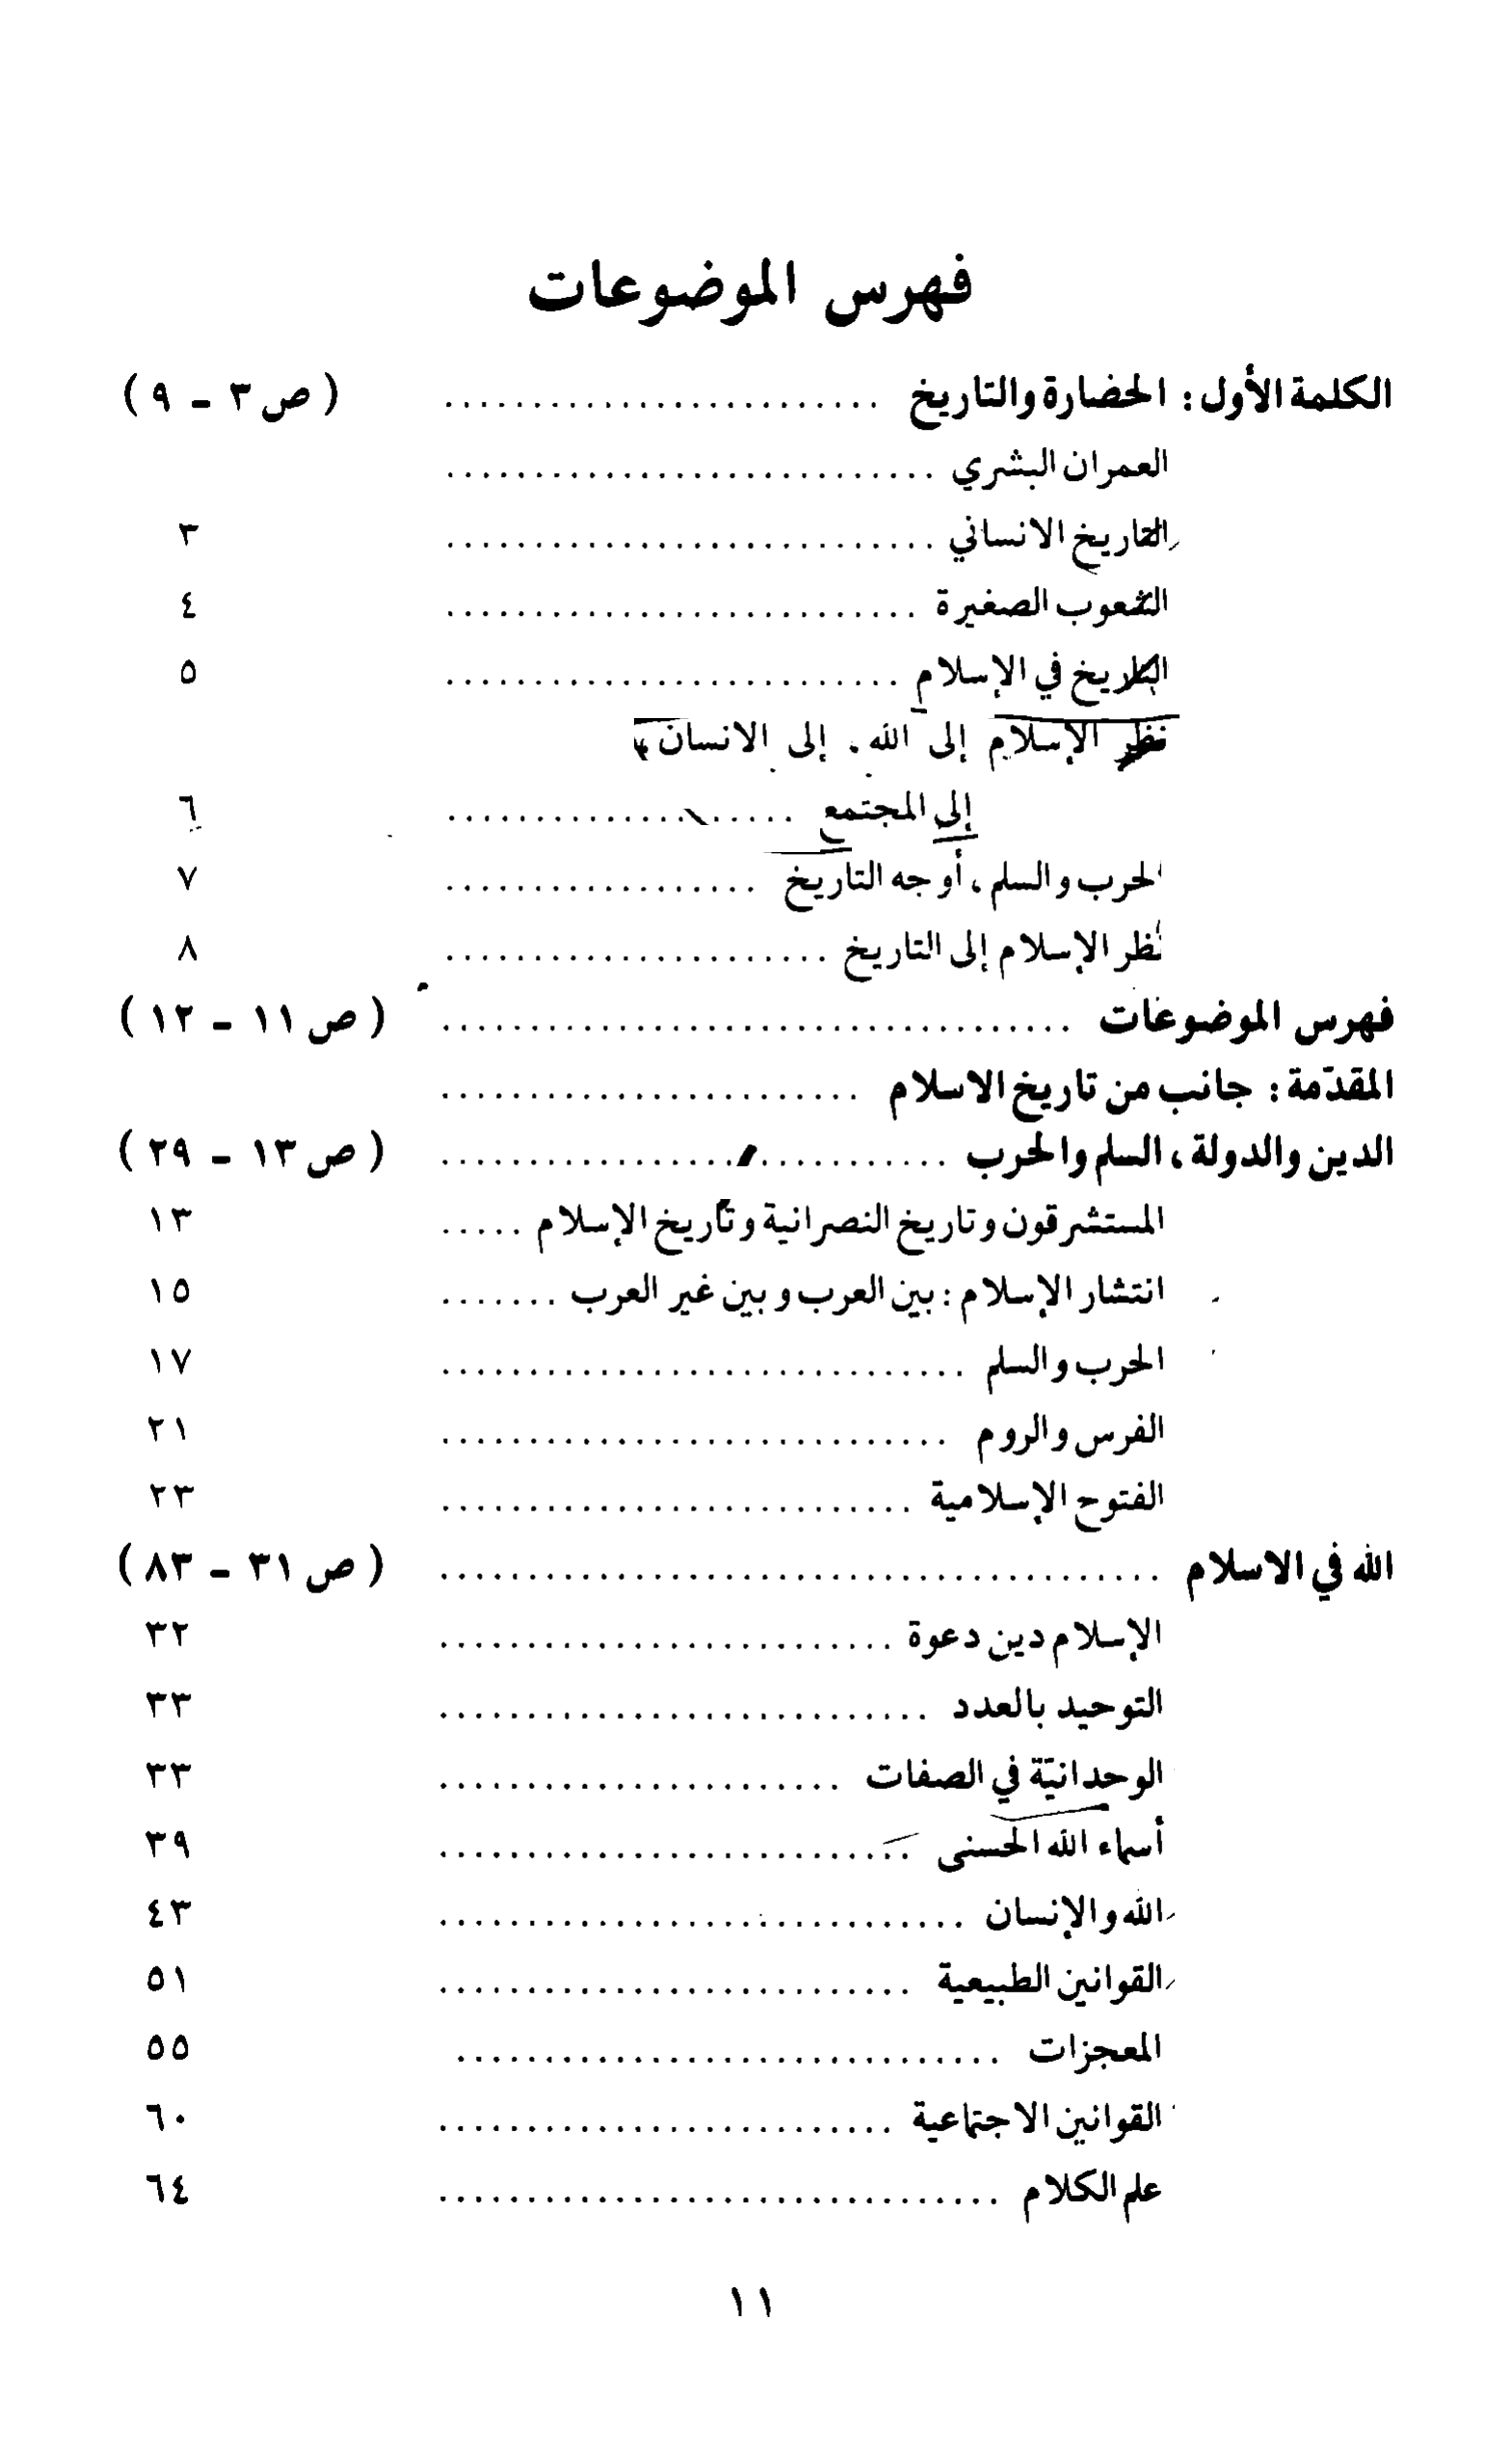 فهرس الموضوعات
الكلمة الأول : الحضارة والتاريخ ........................ ( ص ٣ - ٩ )
العمران البشري ............................
التاريخ الانساني ............................ ٣
الشعوب الصغيرة ........................... ٤
التاريخ في الإسلام .......................... ٥
نظر الإسلام إلى الله ، إلى الانسان ،
إلى المجتمع .................... ٦
الحرب والسلم ، أوجه التاريخ .................. ٧
نظر الإسلام إلى التاريخ ...................... ٨
فهرس الموضوعات ................................... ( ص ١١ - ١٢ )
المقدّمة : جانب من تاريخ الاسلام ........................
الدين والدولة ، السلم والحرب ............................ ( ص ١٣ - ٢٩ )
المستشرقون وتاريخ النصرانية وتاريخ الإسلام ..... ١٣
انتشار الإسلام : بين العرب وبين غير العرب ....... ١٥
الحرب والسلم .............................. ١٧
الفرس والروم ............................. ٢١
الفتوح الإسلامية ........................... ٢٣
الله في الاسلام ......................................... ( ص ٣١ - ٨٣ )
الإسلام دين دعوة .......................... ٣٢
التوحيد بالعدد ............................ ٣٣
الوحدانيّة في الصفات ....................... ٣٣
أسماء الله الحسنى ........................... ٣٩
الله والإنسان .............................. ٤٣
القوانين الطبيعية ........................... ٥١
المعجزات ............................... ٥٥
القوانين الاجتماعية .......................... ٦٠
علم الكلام ................................ ٦٤
١١